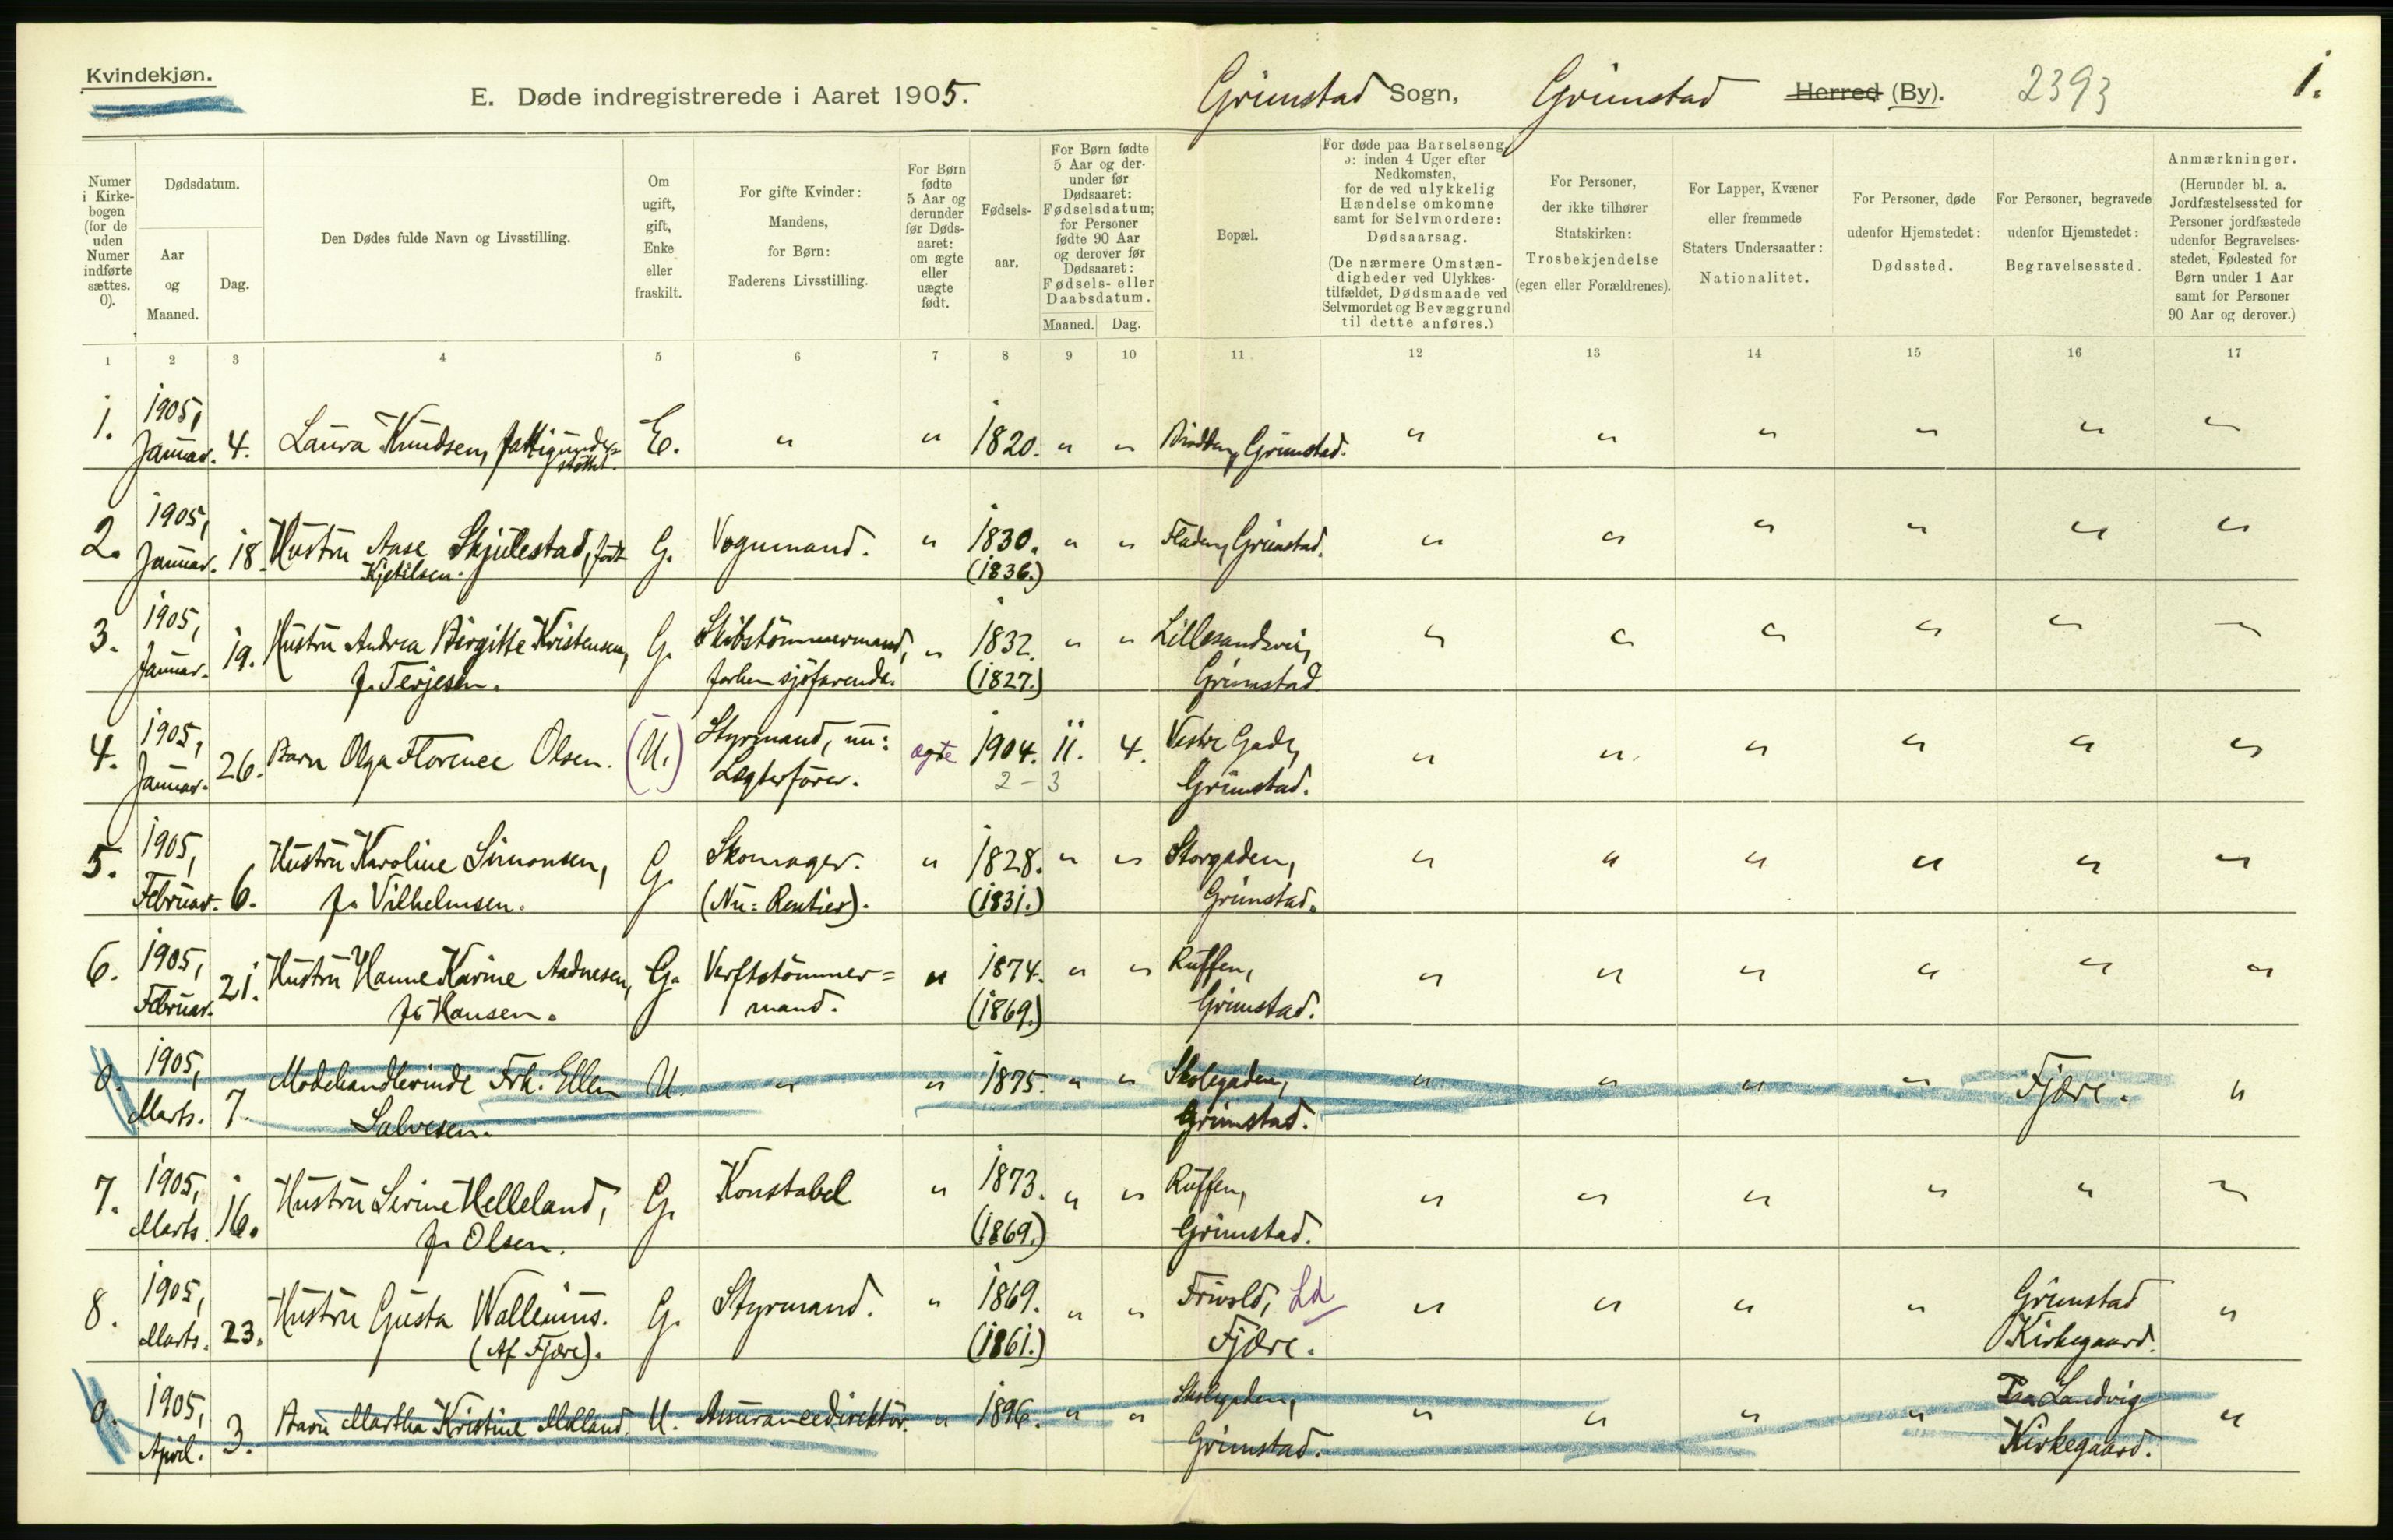 Kvindekjøn.
E. Døde indregistrerede i Aaret 1905.
Grimstad Sogn, Grimstad Herred (By). 2393 1.
Numer i Kirkebogen (for de uden Numer indførte sættes. 0).
Dødsdatum.
Aar og Maaned.
Dag.
Den Dødes fulde Navn og Livsstilling.
Om ugift, gift, Enke eller fraskilt.
For gifte Kvinder: Mandens, for Børn: Faderens Livsstilling.
For Børn fødte 5 Aar og derunder før Dødsaaret: om ægte eller uægte født.
Fødselsaar.
For Børn fødte 5 Aar og derunder før Dødsaaret: Fødselsdatum; for Personer fødte 90 Aar og derover før Dødsaaret: Fødsels- eller Daabsdatum.
Maaned. Dag.
Bopæl.
For døde paa Barselseng, ɔ: inden 4 Uger efter Nedkomsten, for de ved ulykkelig Hændelse omkomne samt for Selvmordere: Dødsaarsag. (De nærmere Omstændigheder ved Ulykkestilfældet, Dødsmaade ved Selvmordet og Bevæggrund til dette anføres.)
For Personer, der ikke tilhører Statskirken: Trosbekjendelse (egen eller Forældrenes).
For Lapper, Kvæner eller fremmede Staters Undersaatter: Nationalitet.
For Personer, døde udenfor Hjemstedet: Dødssted.
For Personer, begravede udenfor Hjemstedet: Begravelsessted.
Anmærkninger. (Herunder bl. a. Jordfæstelsessted for Personer jordfæstede udenfor Begravelsesstedet, Fødested for Børn under 1 Aar samt for Personer 90 Aar og derover.)
1 2 3 4 5 6 7 8 9 10 11 12 13 14 15 16 17
1. 1905, Januar. 4. Laura Knudsen, fattigunderstöttet. E. " " 1820. " " Grimstad. " " " " " "
2. 1905, Januar. 18. Hustru Aase Skjulestad, født Kjetilsen. G. Vognmand. " 1830. (1836.) " " Grimstad. " " " " " "
3. 1905, Januar. 19. Hustru Andrea Birgitte Kristensen, f. Terjesen. G. Skibstömmermand, forhen sjöfarende. " 1832. (1827.) " " Lillesandsvei, Grimstad. " " " " " "
4. 1905, Januar. 26. Barn Olga Florence Olsen. (U.) Styrmand, nu: Lægterförer. ægte 1904. 11. 4. Vestre Gade, Grimstad. " " " " " "
2 - 3
5. 1905, Februar. 6. Hustru Karoline Simonsen, f. Vilhelmsen. G. Skomager. (Nu: Rentier). " 1828. (1831.) " " Storgaden, Grimstad. " " " " " "
6. 1905, Februar. 21. Hustru Hanne Karine Aadnesen, f. Hansen. G. Verftstömmermand. " 1874. (1869.) " " Ruffen, Grimstad. " " " " " "
0. 1905, Marts. 7. Modehandlerinde Frk. Ellen Salvesen. U. " " 1875. " " Skolegaden, Grimstad. " " " " Fjære. "
7. 1905, Marts. 16. Hustru Serine Helleland, f. Olsen. G. Konstabel " 1873. (1869.) " " Ruffen, Grimstad. " " " " " "
8. 1905, Marts. 23. Hustru Gusta Wallenius. (Af Fjære). G. Styrmand. " 1869. (1861.) " " Frivold, Ld Fjære. " " " " Grimstad Kirkegaard. "
0. 1905, April. 3. Barn Martha Kristine Mølland. U. Assurancedirektör. " 1896. " " Skolegaden, Grimstad. " " " " Paa Landvig Kirkegaard. "